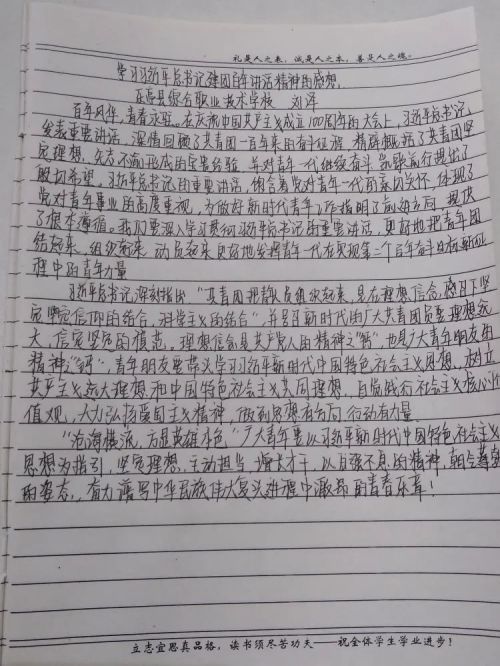 礼是人之表，诚是人之本，善是人之魂。
学习习近平总书记建团百年讲话精神的感想
正定县综合职业技术学校 刘泽
百年风华，青春永驻。在庆祝中国共产主义成立100周年的大会上，习近平总书记
发表重要讲话，深情回顾了共青团一百年来的奋斗征程，精辟概括了共青团坚
定理想，矢志不渝形成的宝贵经验，并对青年一代继续奋斗 提出了
殷切希望，习近平总书记的重要讲话，饱含着党对青年一代的亲切关怀，体现了
党对青年事业的高度重视，为做好新时代青年工作指明了前进方向，提供
了根本遵循。我们要深入学习贯彻习近平总书记的重要讲话，更好地把青年团
结起来，组织起来 动员起来 更好地发挥青年一代在实现第二个百年奋斗目标新征
程中的青年力量
习近平总书记深刻指出“共青团把青年人员组织起来，是在理想信念感召下坚
定坚定信仰的结合，科学主义的结合”，并号召新时代的广大共青团员要理想远
大，信念坚定的模范，理想信念是共产党人的精神之“钙”也是广大青年朋友的
精神之“钙”，青年朋友要带头学习习近平新时代中国特色社会主义思想，树立
共产主义远大理想和中国特色社会主义共同理想，自觉践行社会主义核心价
值观，大力弘扬爱国主义精神，做到思想有方向 行动有力量
“沧海横流，方显英雄本色”广大青年要以习近平新时代中国特色社会主义
思想为指引，坚定理想，主动担当，增长才干，以自强不息的精神，朝气蓬勃
的姿态，奋力谱写中华民族伟大复兴进程中激昂的青春乐章！
立志宜思真品格，读书须尽苦功夫——祝全体学生学业进步！